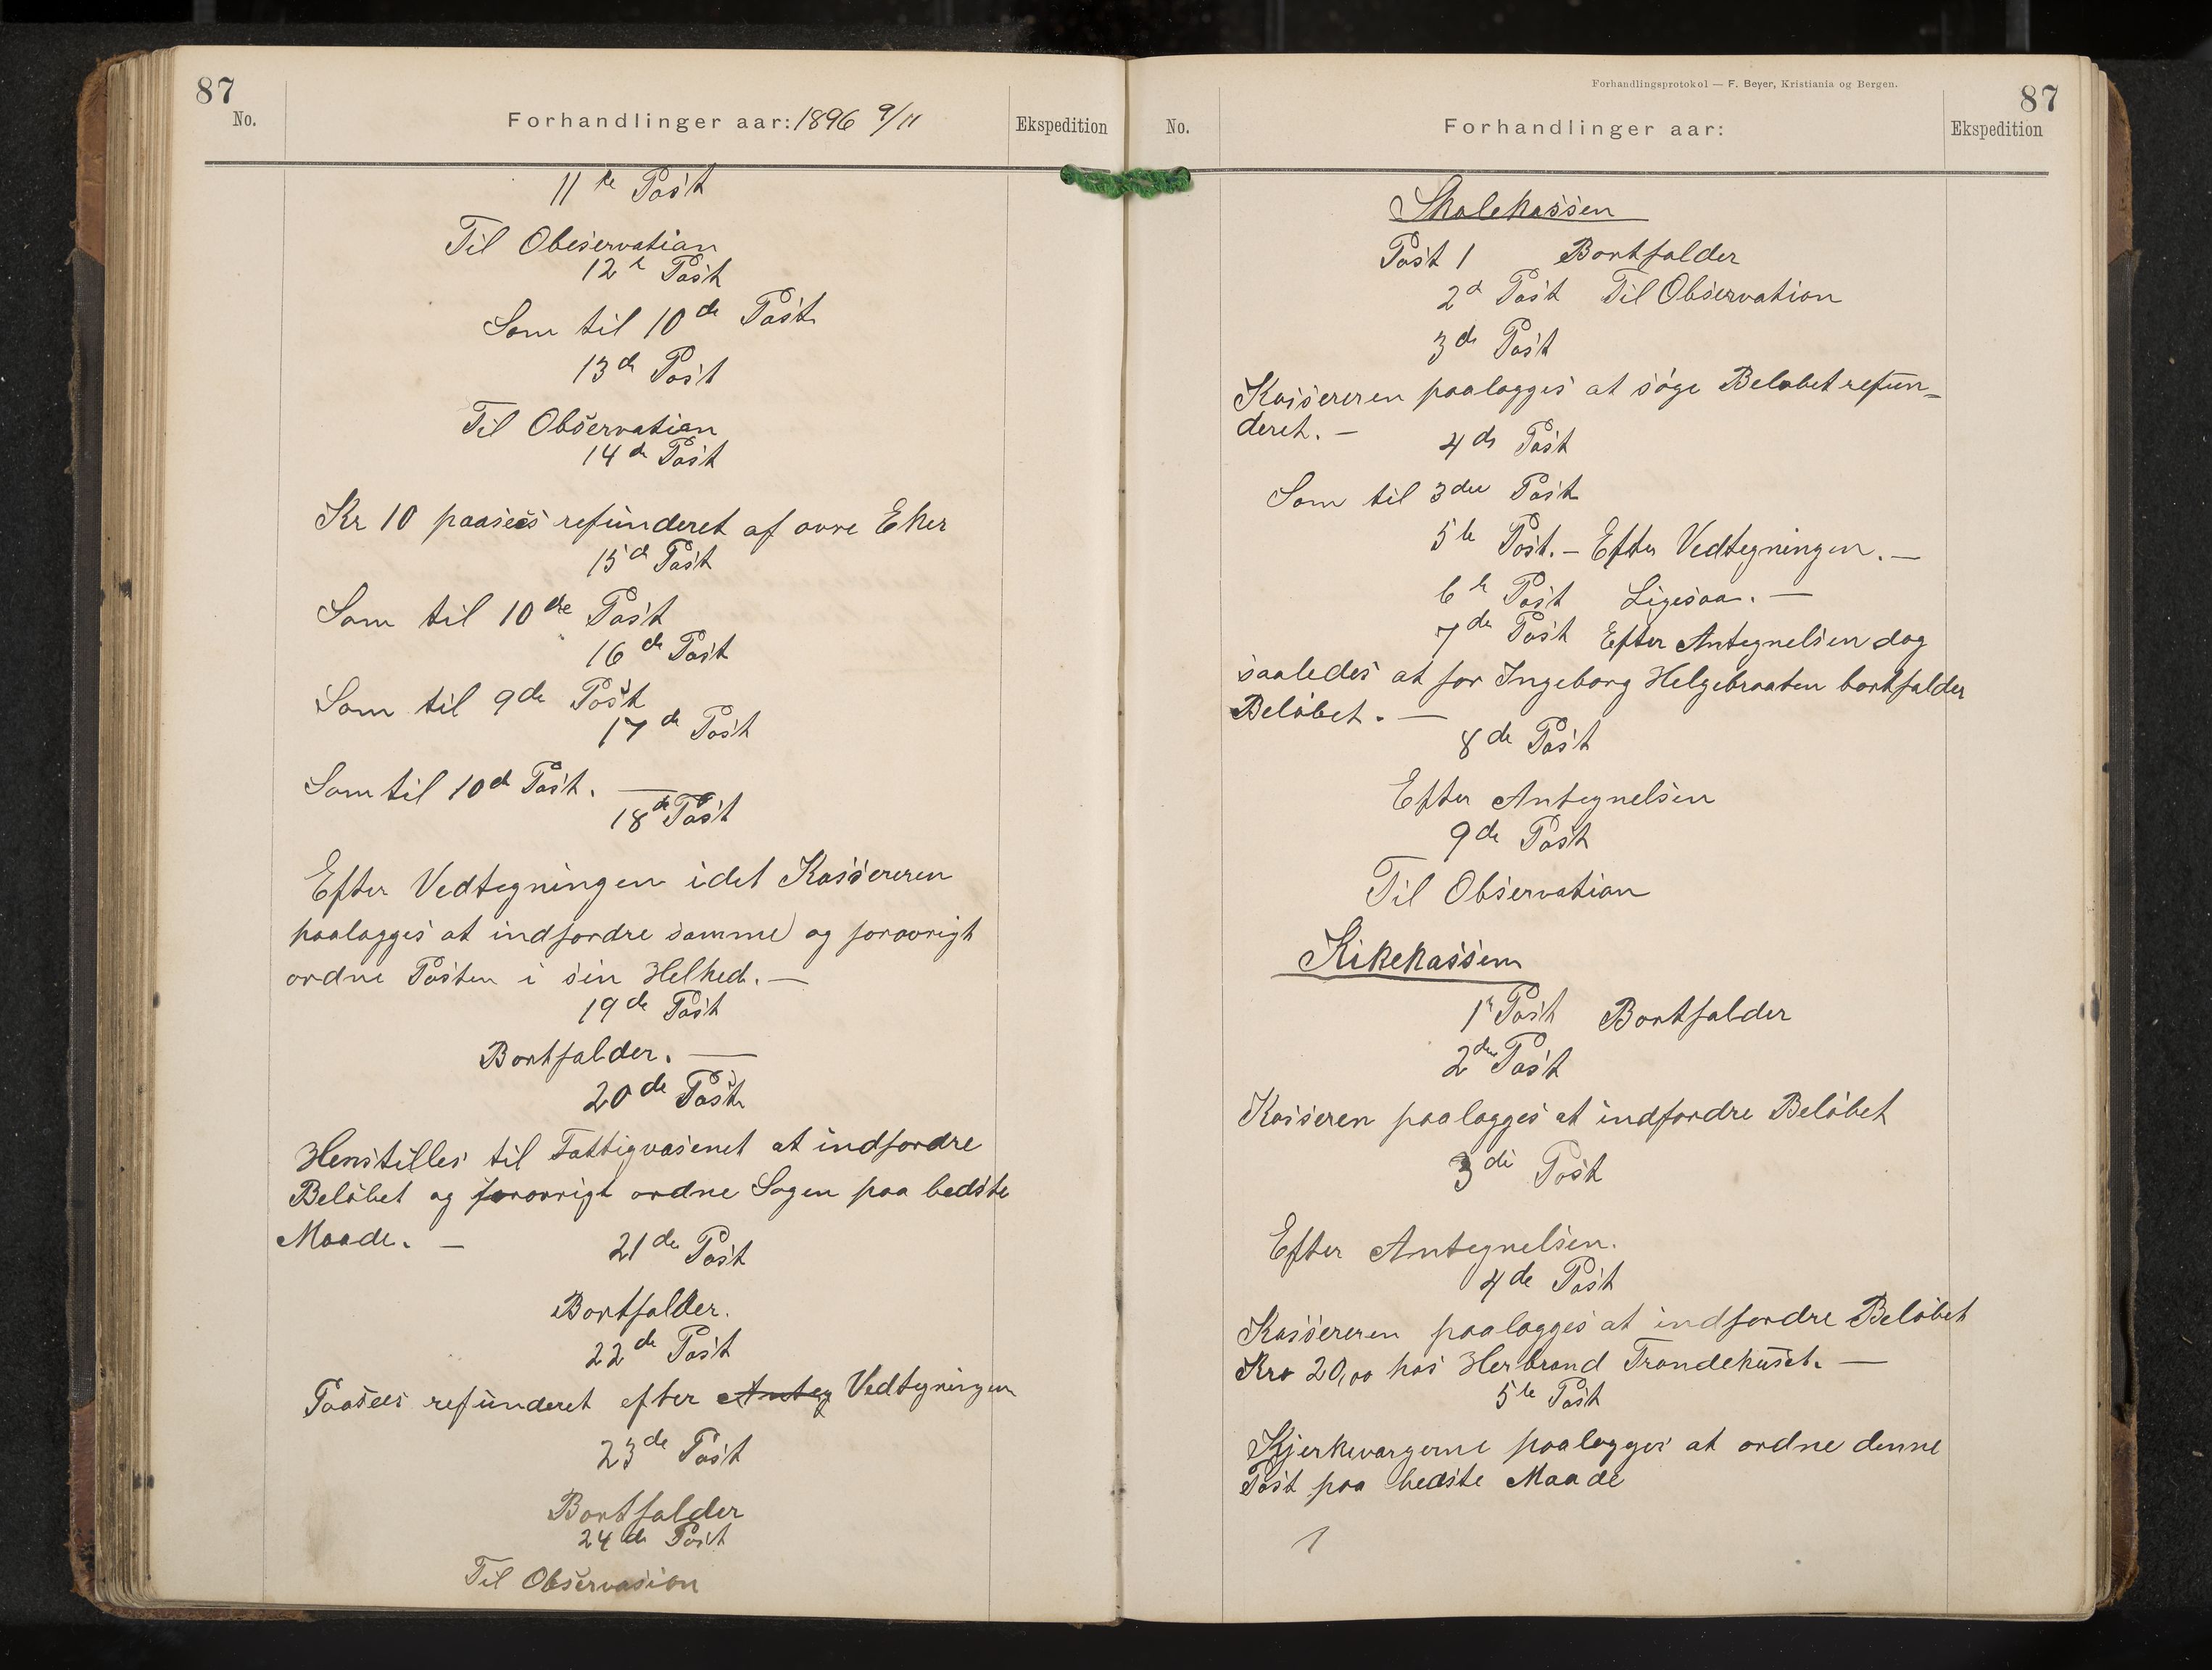 87
No.
Forhandlinger aar: 1896 9/11
Ekspedition
11te Post
Til Observation
12te Post
Som til 10de Post
13de Post
Til Observation
14de Post
Kr 10 paasees refunderet af øvre Eker
15de Post
Som til 10de Post
16de Post
Som til 9de Post
17de Post
Som til 10de Post. —
18de Post
Efter Vedtegningen idet Kassereren
paalægges at indfordre samme og forøvrigt
ordne Posten i sin Helhed. —
19de Post
Bortfalder. —
20de Post
Henstilles til Fattigvæsenet at indfordre
Beløbet og forøvrigt ordne Sagen paa bedste
Maade. —
21de Post
Bortfalder.
22de Post
Paasees refunderet efter Anteg Vedtegningen
23de Post
Bortfalder
24de Post
Til Observasion
Forhandlingsprotokol — F. Beyer, Kristiania og Bergen.
87
No.
Forhandlinger aar:
Ekspedition
Skolekassen
Post 1 Bortfalder
2d Post Til Observation
3de Post
Kassereren paalægges at søge Beløbet refun-
deret. —
4de Post
Som til 3die Post
5te Post. — Efter Vedtegningen. —
6te Post Ligesaa. —
7de Post Efter Antegnelsen dog
saaledes at for Ingeborg Helgebraaten bortfalder
Beløbet. —
8de Post
Efter Antegnelsen
9de Post
Til Observation
Kikekassen
1r Post Bortfalder
2den Post
Kasseren paalægges at indfordre Beløbet
3di Post
Efter Antegnelsen.
4de Post
Kassereren paalægges at indfordre Beløbet
Kro 20,00 hos Herbrand Trondehuset. —
5te Post
Kjerkeværgerne paalægges at ordne denne
Post paa bedste Maade